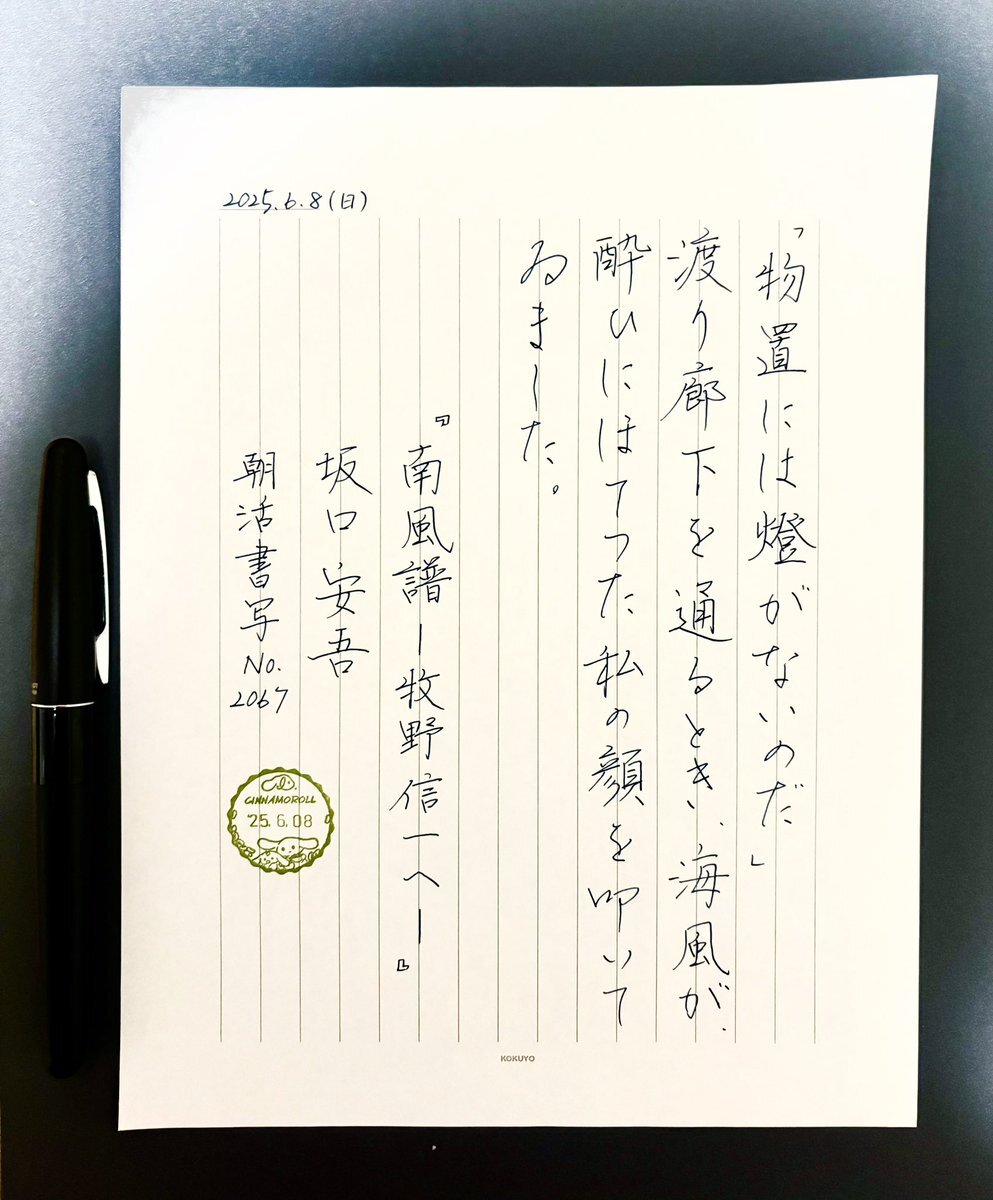 2025.6.8(日)
「物置には燈がないのだ」
渡り廊下を通るとき、海風が、
酔ひにほてつた私の顔を叩いて
ゐました。
『南風譜―牧野信一へ―』
坂口安吾
朝活書写No.
2067
CINNAMOROLL
'25.6.08
KOKUYO